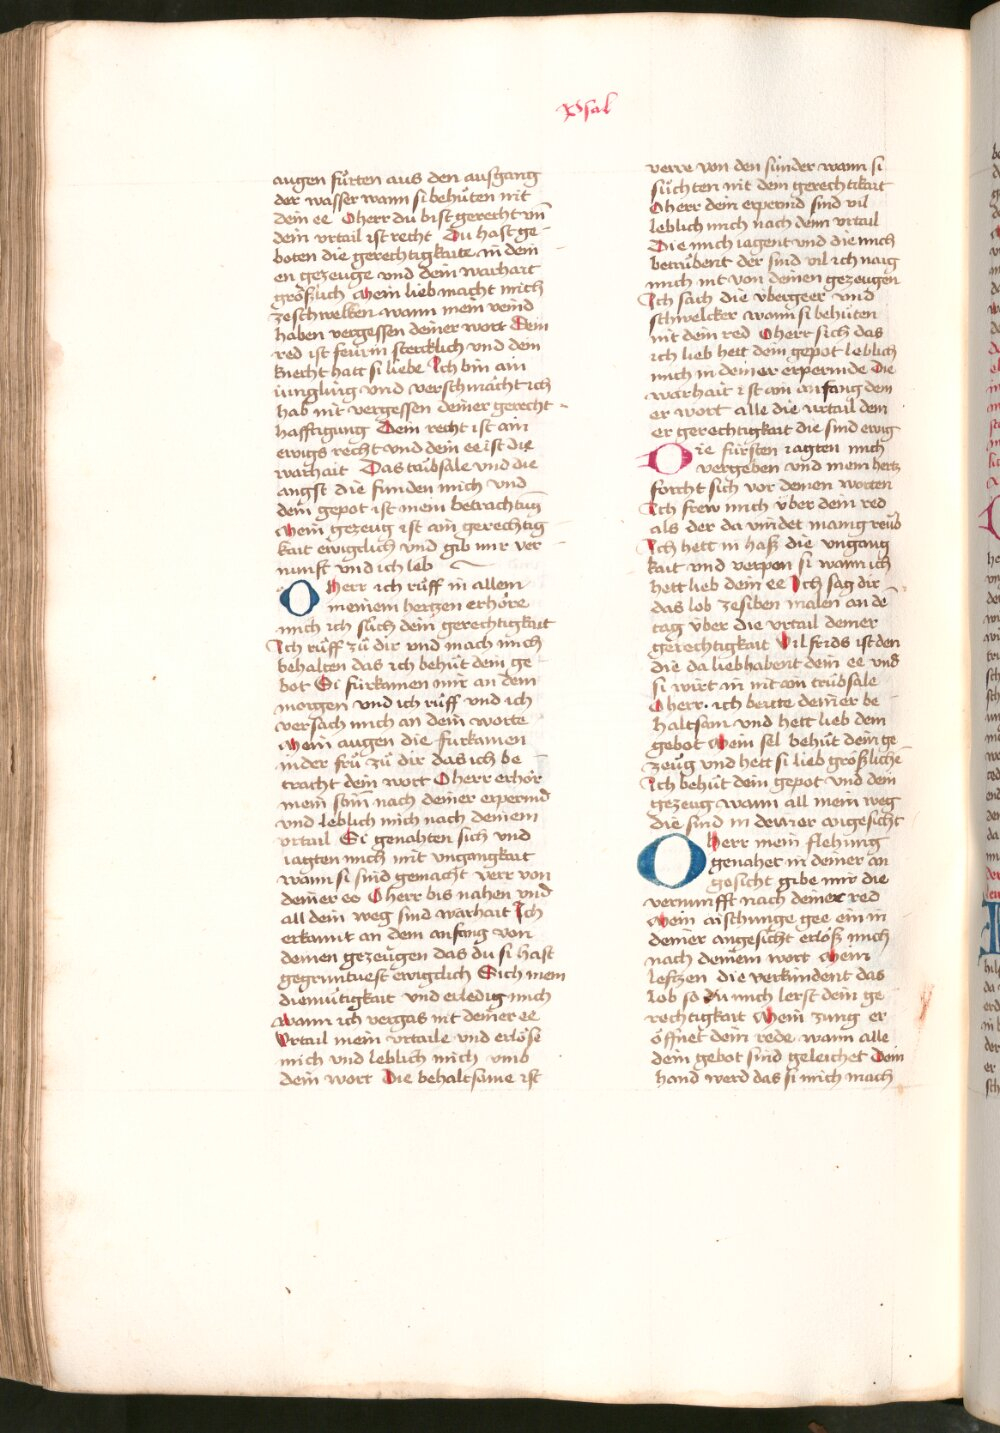 psal
augen fürten aus den ausgang
der wasser wann si behüten nit
dein ee O herr du bist gerecht vn̄
dein vrtail ist recht Du hast ge-
boten die gerechtigkaite in dein
en gezeuge vnd dein warhait
größlich Mein lieb macht mich
zeschwelken wann mein veind
haben vergessen deiner wort Dein
red ist feurin stercklich vnd dein
knecht hatt si liebe Ich bin ain
iungling vnd verschmächt ich
hab nit vergessen deiner gerecht-
hafftigung Dein recht ist ain
ewigs recht vnd dein ee ist die
warhait Das trübsale vnd die
angst die funden mich vnd
dein gepot ist mein betrachtūg
Mein gezeug ist ain gerechtig
kait ewigclich vnd gib mir ver
nunft vnd ich leb
O herr ich rüff in allem
meinem hertzen erhöre
mich ich süch dein gerechtigkait
Ich rüff zü dir vnd mach mich
behalten das ich behüt dein ge
bot Si fürkamen mir an dem
morgen vnd ich rüff vnd ich
versach mich an dein worte
Mein augen die furkamen
in der frü zü dir das ich be
tracht dein wort O herr erhör
mein stim nach deiner erpermd
vnd leblich mich nach deinem
vrtail Si genahten sich vnd
iagten mich mit vngangkait
wann si sind gemacht verr von
deiner ee O herr bis nahen vnd
all dein weg sind warhait Ich
erkannt an dem anfang von
deinen gezeugen das du si hast
gegruntuest ewigclich Sich mein
diemütigkait vnd erledig mich
wann ich vergas nit deiner ee
Vrtail mein vrtaile vnd erlöse
mich vnd leblich mich vmb
dein wort Die behaltsame ist
verre von den sünder wann si
süchten nit dein gerechtikait
O herr dein erpermd sind vil
leblich mich nach dem vrtail
Die mich iagent vnd die mich
betrübent der sind vil ich naig
mich nit von deinen gezeugen
Ich sach die vbergeer vnd
schwelcker wann si behüten
nit dein red O herr sich das
ich lieb hett dein gepot leblich
mich in deiner erpermde Die
warhait ist ain anfang dein
er wort alle die vrtail dein
er gerechtigkait die sind ewig
Die fürsten iagten mich
vergeben vnd mein hertz
forcht sich vor deinen worten
Ich frew mich über dein red
als der da vindet manig reub
Ich hett in haß die vngang
kait vnd verpon si wann ich
hett lieb dein ee Ich sag dir
das lob zesiben malen an dē
tag über die vrtail deiner
gerechtigkait Vil frids ist den
die da liebhabent dein ee vnd
si wirt in nit ain trübsale
O herr ich beite deiner be
haltsam vnd hett lieb dein
gebot Mein sel behüt dein ge
zeug vnd hett si lieb größliche
Ich behüt dein gepot vnd dein
gezeug wann all mein weg
die sind in deiner angesicht
O herr mein flehung
genahet in deiner an
gesicht gibe mir die
vernunfft nach deiner red
Mein aischunge gee ein in
deiner angesicht erlöß mich
nach deinem wort Mein
leftzen die verkündent das
lob so du mich lerst dein ge
rechtigkait Mein zung er
öffnet dein rede wann alle
dein gebot sind geleichet Dein
hand werd das si mich mach